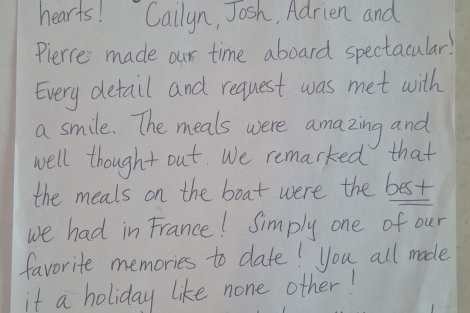 hearts! Cailyn, Josh, Adrien and
Pierre made our time aboard spectacular!
Every detail and request was met with
a smile. The meals were amazing and
well thought out. We remarked that
the meals on the boat were the best
we had in France! Simply one of our
favorite memories to date! You all made
it a holiday like none other!